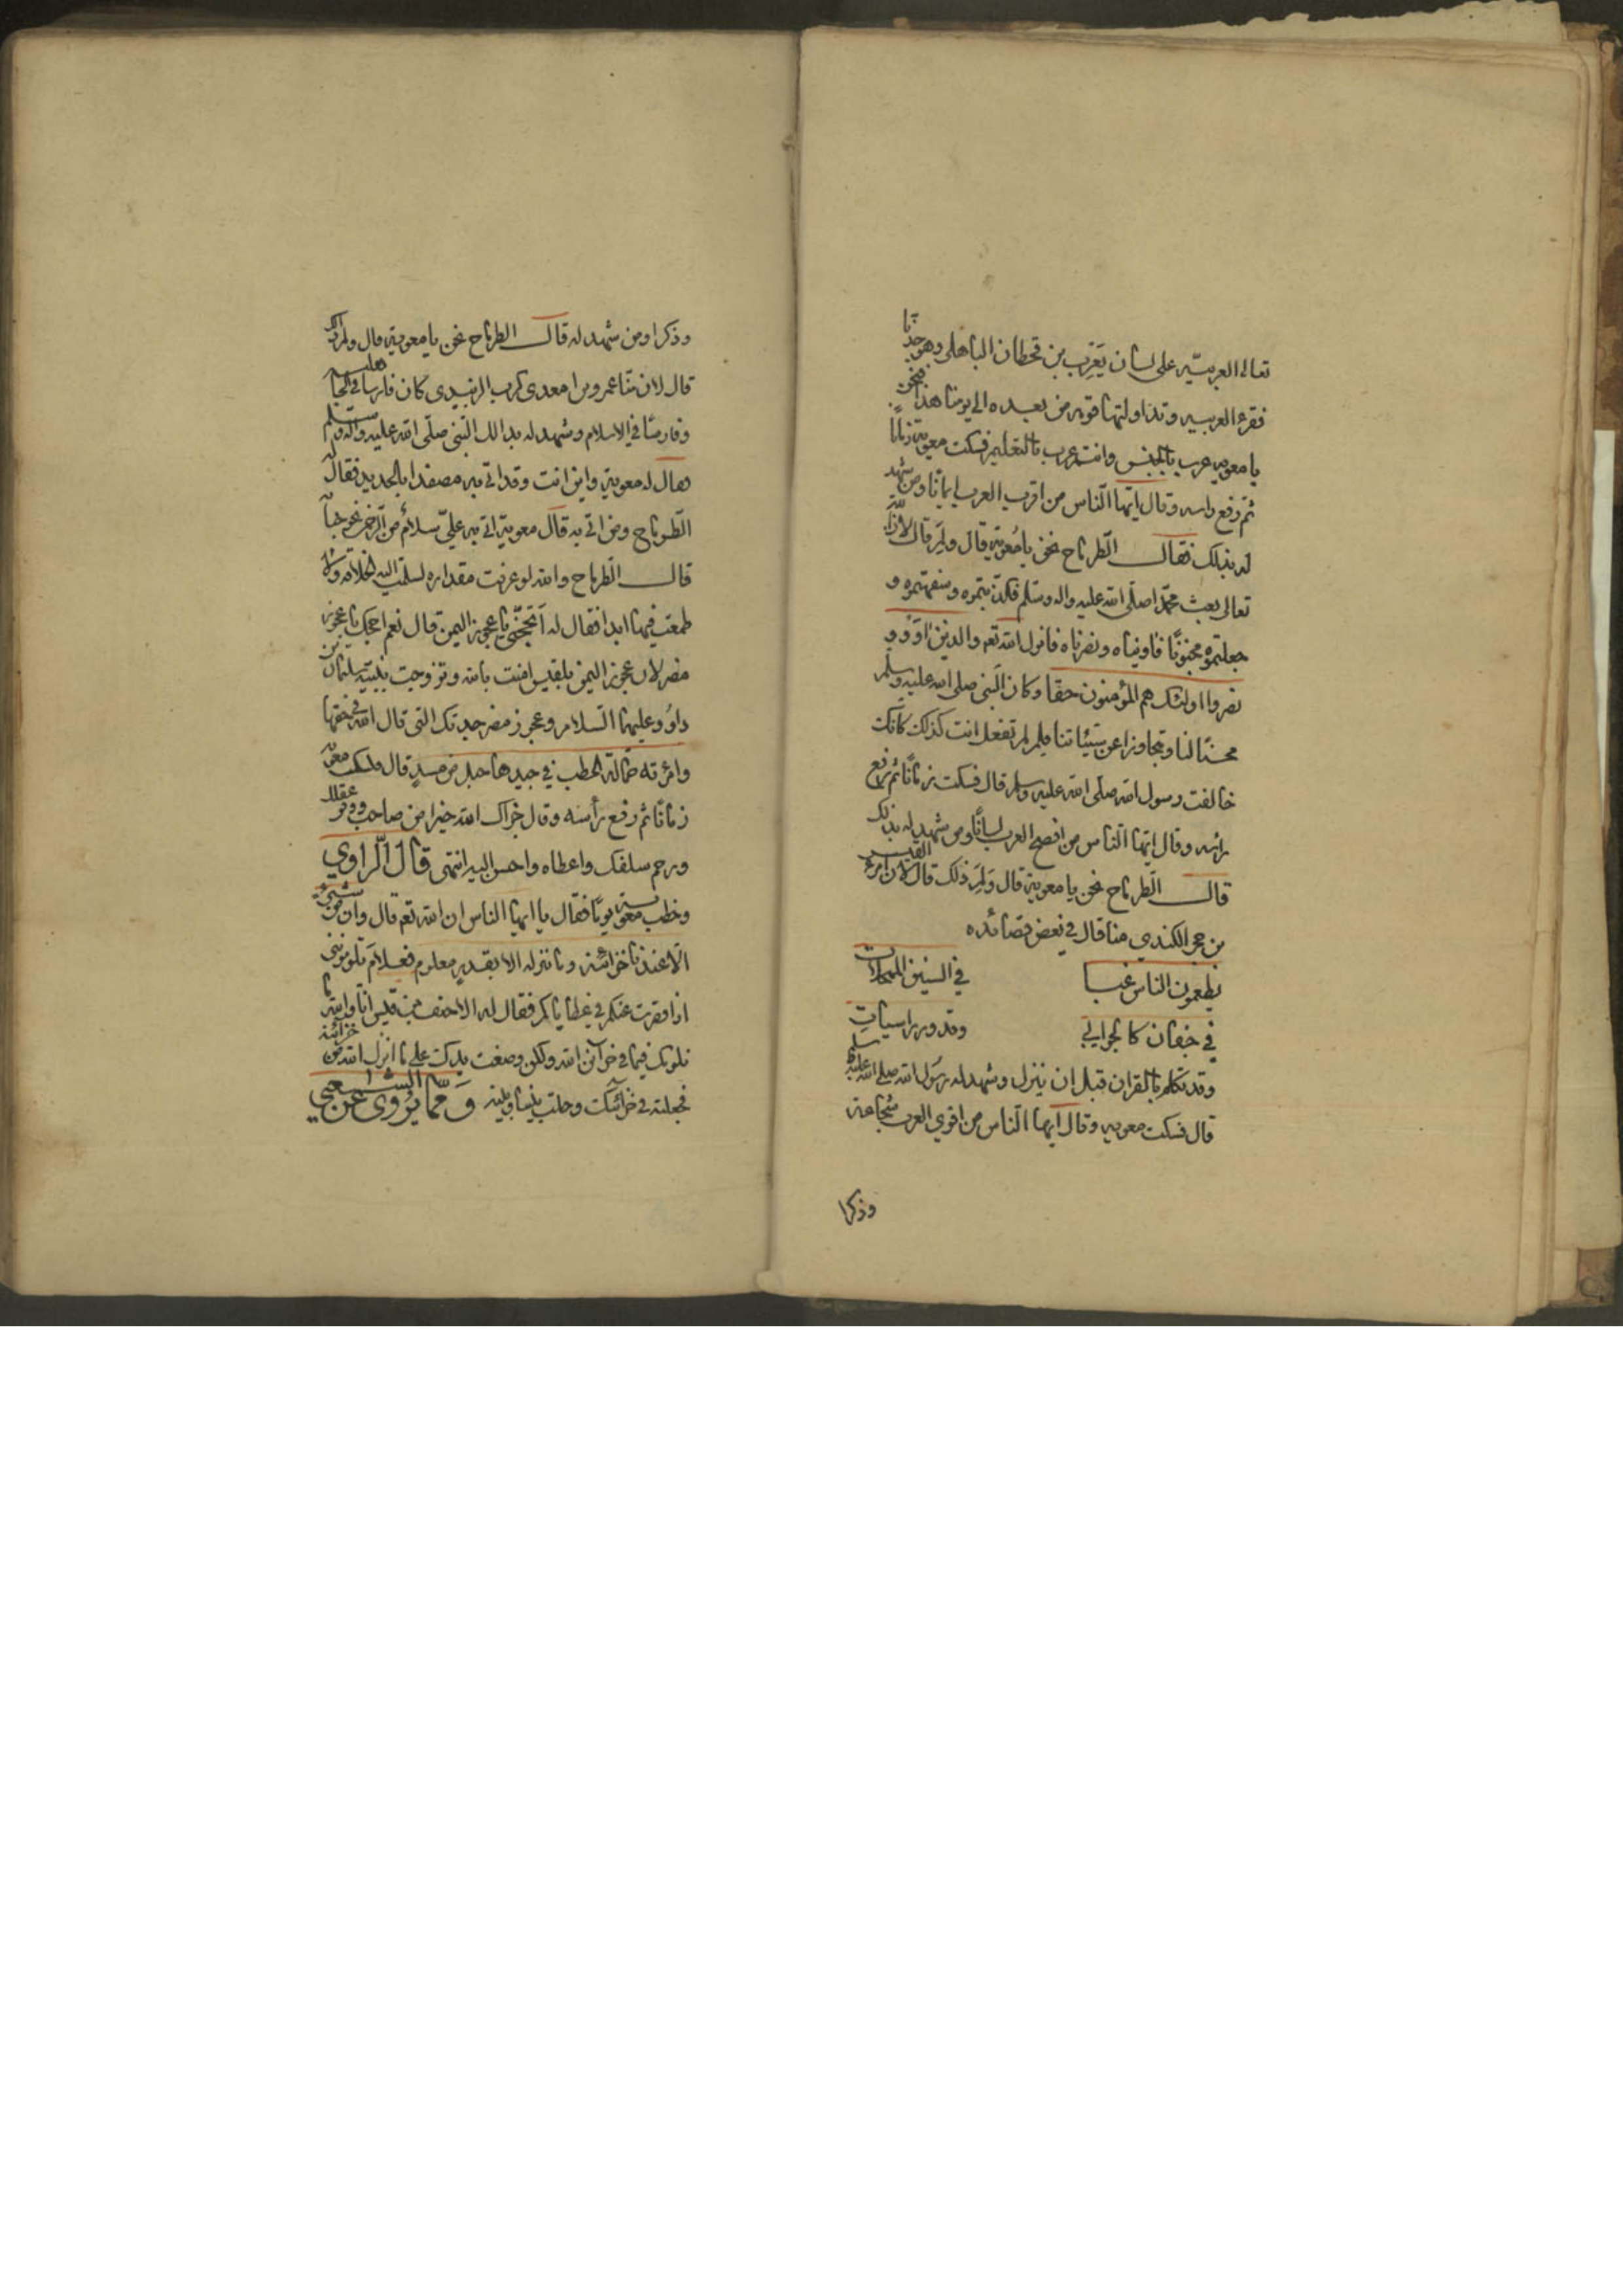 تعالى العربيّة على لسان يَعْرِب بن قحطان الباهلي وهو جدّنا
فقرء العربيه وتداولتها قومه من بعده الى يومنا هذا فنحن
يا معويه عرب بالجنس وانتم عرب بالتعليم فسكت معوية زمانًا
ثم رفع راسه وقال ايّها النّاس من اقرب العرب ايمانًا ومن شهد
له بذلك فقال الطّرماح نحن يا مُعوية قال ولِمَ قال لانّ الله
تعالى بعث محمّدا صلّى الله عليه واله وسلّم فكذّبتموه وسفهتموه و
جعلتموه مجنونًا فاويناه ونصرناه فانزل الله تعم والذين اوَوْ و
نصروا اولئك هم المؤمنون حقّا وكان النّبي صلى الله عليه وسلّم
محسنًا لنا وتجاوزا عن سيّئاتنا فلم لم تفعل انت كذلك كانّك
خالفت رسول الله صلّى الله عليه وسلم قال فسكت زمانًا ثم رفع
رأسه وقال ايّها النّاس من افصح العرب لسانًا ومن شهد له بذلك
قال الطّرماح نحن يا معوية قال وَلِمَ ذلك قال لان امرء القيس
بن حجر الكندي منا قال في بعض قصائده
يطعمون الناس غبا في السنين الممحلات
في جفان كالجوابي وقدور راسيات
وقد تكلم بالقران قبل ان ينزل وشهد له رسول الله صلى الله عليه وسلم
قال فسكت معويه وقال ايها النّاس من اقوي العرب شجاعة
وذكرا
وذكرا ومن شهد له قال الطرماح نحن يا معوية قال ولم ذلك
قال لان منّا عمرو بن معدي كرب الزبيدي كان فارسا في الجاهليه
وفارسًا في الاسلام وشهد له بذالك النّبي صلّى الله عليه واله وسلم
فقال له معوية واين انت وقد اتي به مصفدا بالحديد فقال
الطّرماح ومن اتي به قال معوية اتي به عليّ
قال الطّرماح والله لو عرفت مقداره لسلّمت اليه الخلافة ولا
طمعت فيها ابدا فقال له أتحجّني يا عجوز اليمن قال نعم احجك يا عجوز
مضر لان عجوز اليمن بلقيس امنت بالله وتزوجت بنبيّه سليمان بن
داوُد عليهما السّلام وعجوز مضر جدتك التي قال الله في حقها
وامرُته حمّالة الحطب في جيدها حبل من مسدٍ قال فسكت معوية
زمانًا ثم رفع رأسه وقال جزاك الله خيرا من صاحب ووفر عقلك
ورحم سلفك واعطاه واحسن اليه انتهى قال الرّاوي
وخطب معوية يومًا فقال يا ايها الناس ان الله تعم قال وان من شيء
الّا عندنا خزائنه وما ننزله الا بقدر معلوم فعلامَ تلومونني
اذا قصرت عنكم في عطاياكم فقال له الاحنف بن قيس انّا والله ما
نلومك فيما في خزائن الله ولكن وضعت يدك على ما انزل الله من خزائنه
فجعلته في خزائنك وحلت بيننا وبينه وَممّا يُروى عن الشعبي